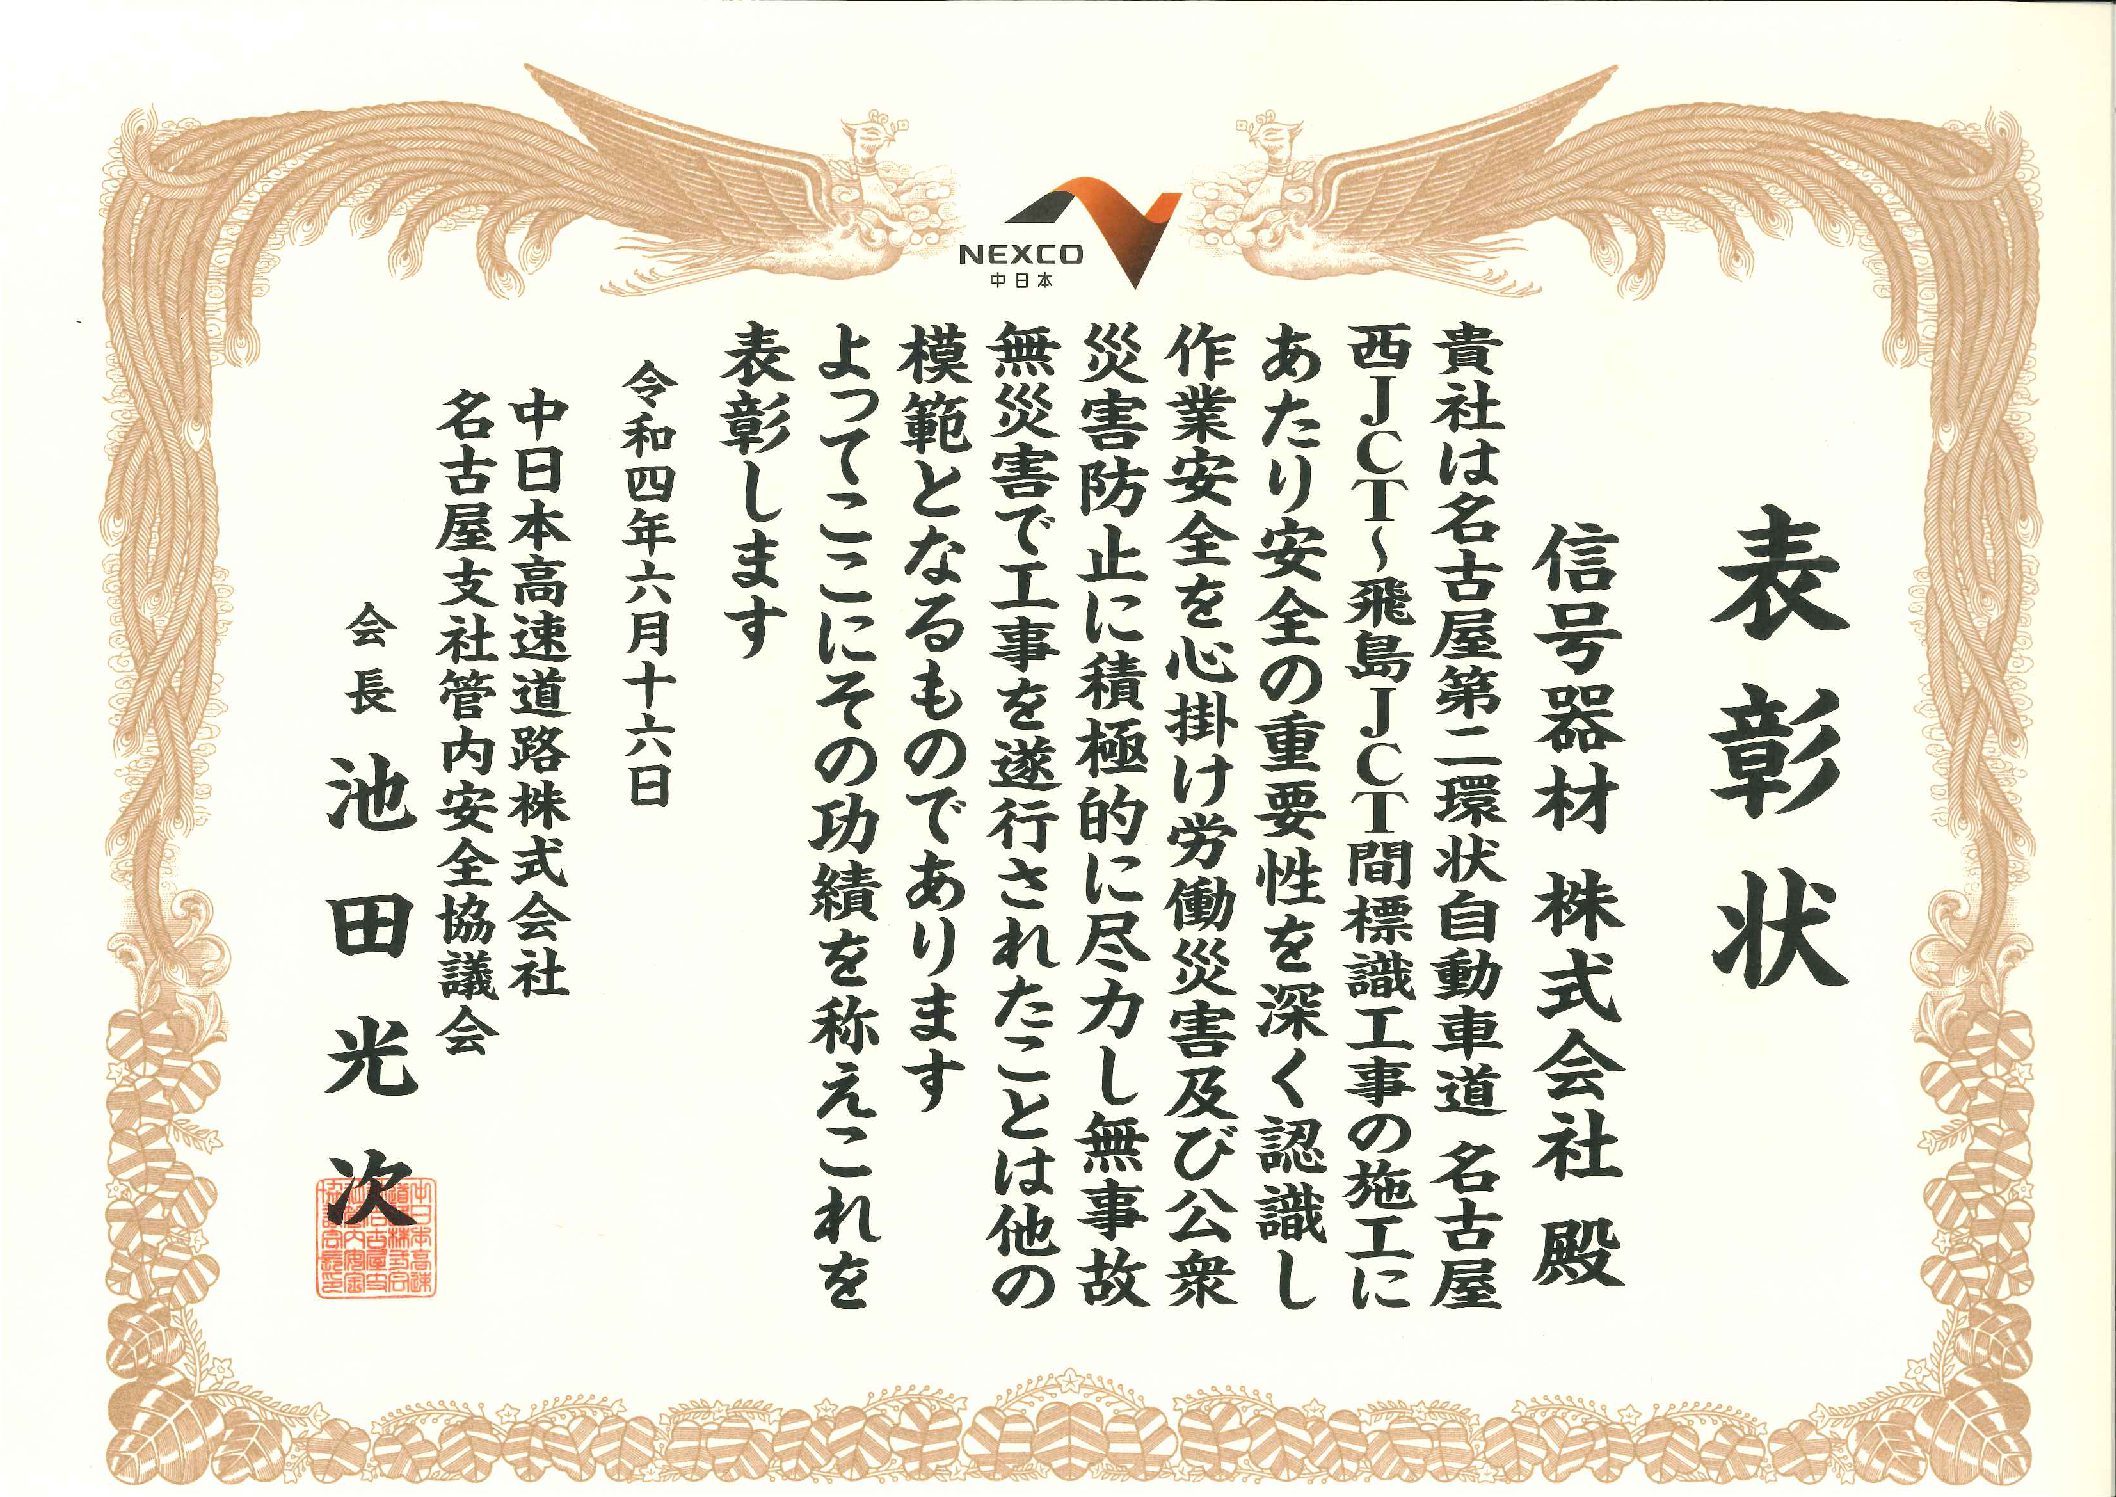 NEXCO
中日本
表彰状
信号器材 株式会社 殿
貴社は名古屋第二環状自動車道 名古屋
西JCT～飛島JCT間標識工事の施工に
あたり安全の重要性を深く認識し
作業安全を心掛け労働災害及び公衆
災害防止に積極的に尽力し無事故
無災害で工事を遂行されたことは他の
模範となるものであります
よってここにその功績を称えこれを
表彰します
令和四年六月十六日
中日本高速道路株式会社
名古屋支社管内安全協議会
会長 池田光次